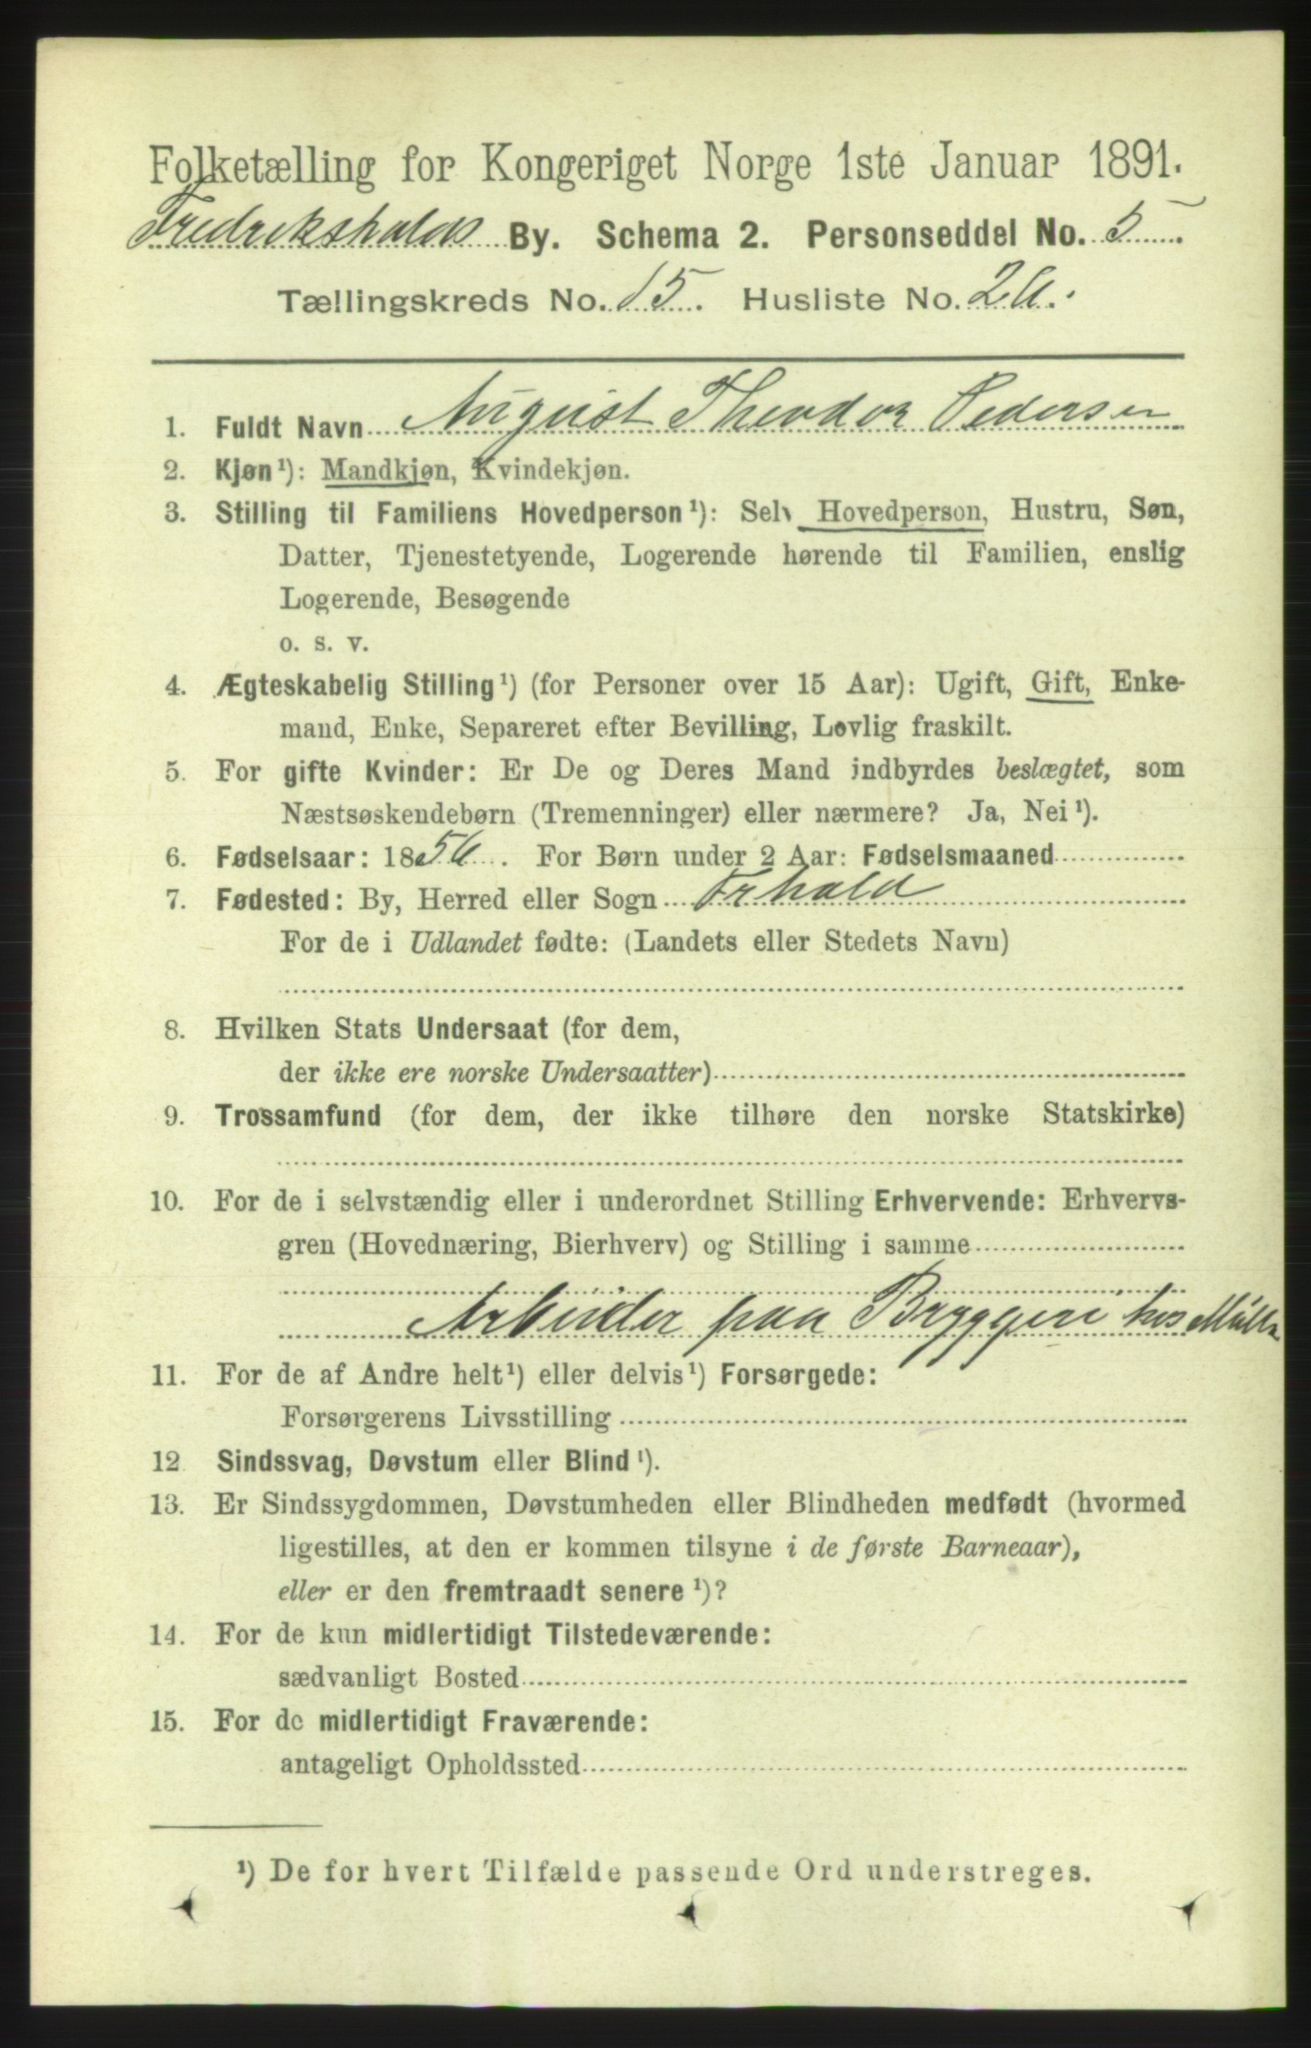 Folketælling for Kongeriget Norge 1ste Januar 1891.
Fredrikshalds By. Schema 2. Personseddel No. 5
Tællingskreds No. 15. Husliste No. 26.
1. Fuldt Navn August Theodor Pedersen
2. Kjøn¹): Mandkjøn, Kvindekjøn.
3. Stilling til Familiens Hovedperson¹): Selv Hovedperson, Hustru, Søn,
Datter, Tjenestetyende, Logerende hørende til Familien, enslig
Logerende, Besøgende
o. s. v.
4. Ægteskabelig Stilling¹) (for Personer over 15 Aar): Ugift, Gift, Enke-
mand, Enke, Separeret efter Bevilling, Lovlig fraskilt.
5. For gifte Kvinder: Er De og Deres Mand indbyrdes beslægtet, som
Næstsøskendebørn (Tremenninger) eller nærmere? Ja, Nei¹).
6. Fødselsaar: 1856. For Børn under 2 Aar: Fødselsmaaned
7. Fødested: By, Herred eller Sogn Frhald
For de i Udlandet fødte: (Landets eller Stedets Navn)
8. Hvilken Stats Undersaat (for dem,
der ikke ere norske Undersaatter)
9. Trossamfund (for dem, der ikke tilhøre den norske Statskirke)
10. For de i selvstændig eller i underordnet Stilling Erhvervende: Erhvervs-
gren (Hovednæring, Bierhverv) og Stilling i samme
Arbeider paa Bryggeri hos Müller
11. For de af Andre helt¹) eller delvis¹) Forsørgede:
Forsørgerens Livsstilling
12 Sindssvag, Døvstum eller Blind¹).
13. Er Sindssygdommen, Døvstumheden eller Blindheden medfødt (hvormed
ligestilles, at den er kommen tilsyne i de første Barneaar),
eller er den fremtraadt senere¹)?
14. For de kun midlertidigt Tilstedeværende:
sædvanligt Bosted
15. For de midlertidigt Fraværende:
antageligt Opholdssted
¹) De for hvert Tilfælde passende Ord understreges.